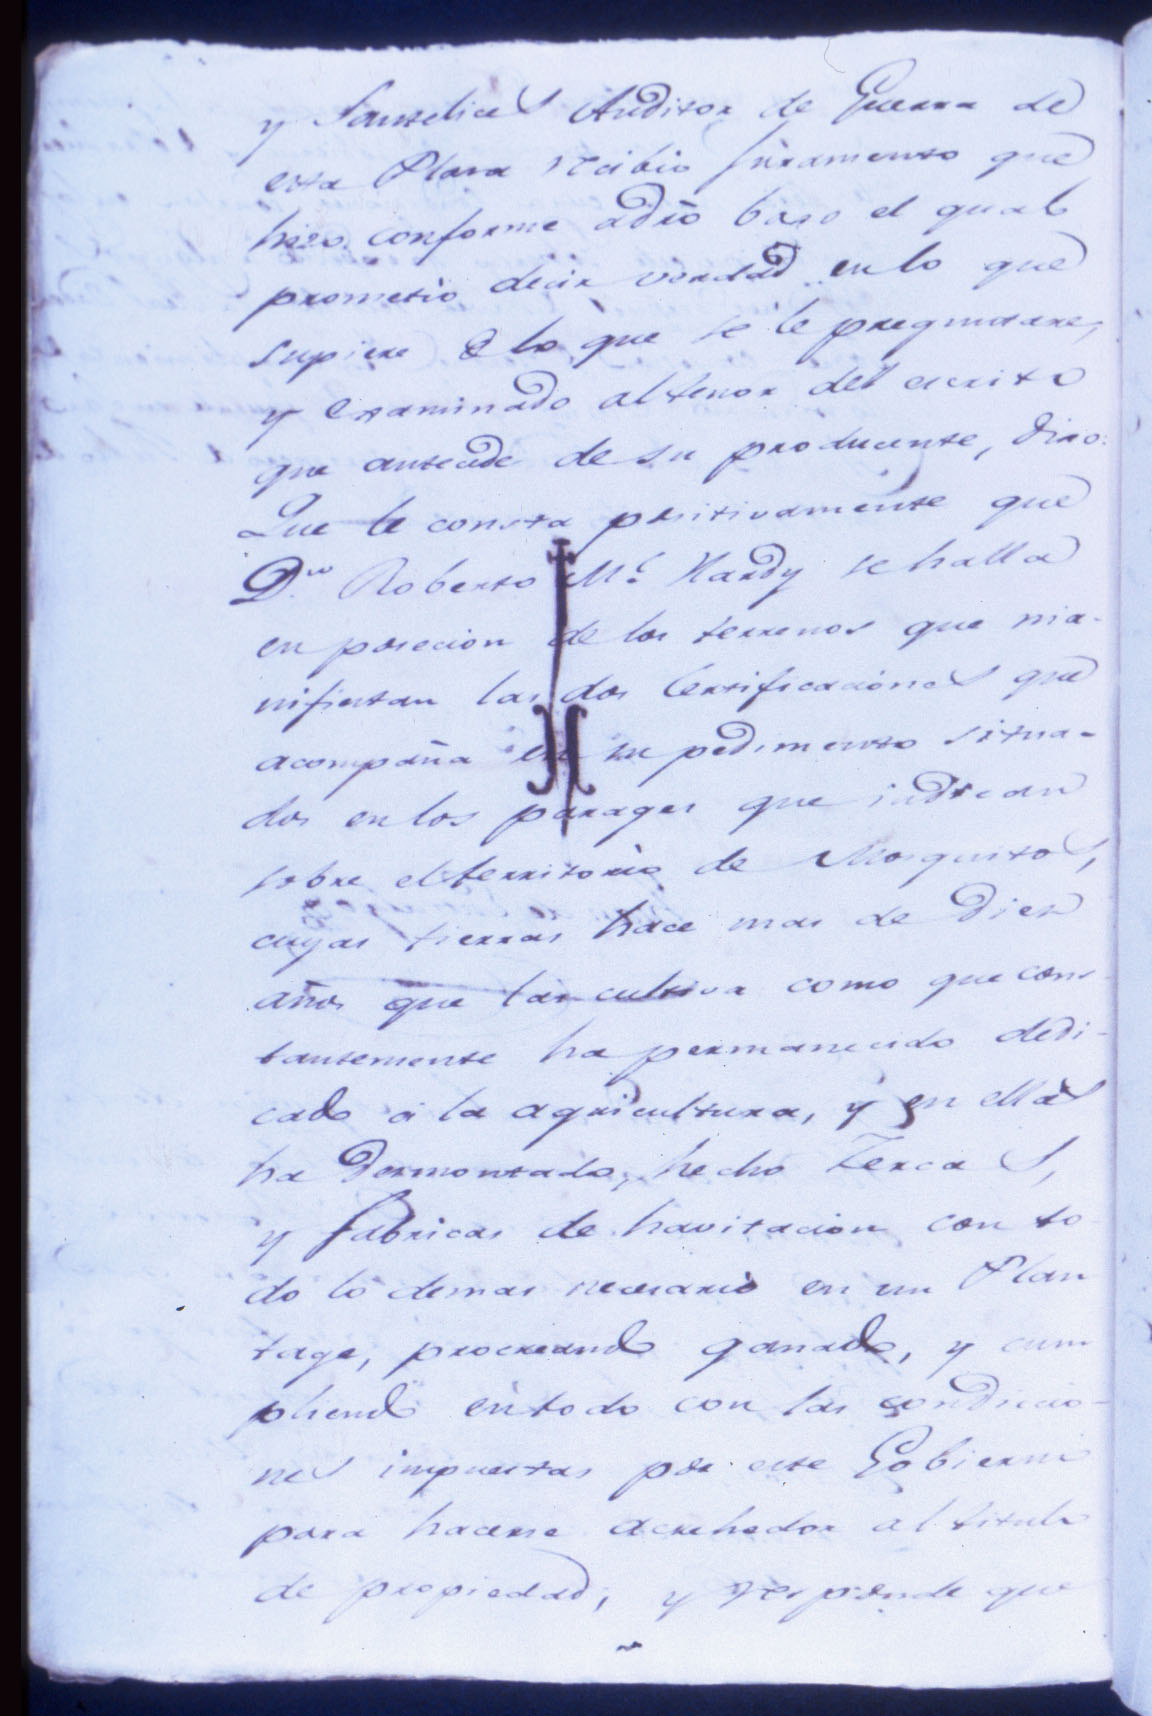 y Santelices Auditor de Guerra de
esta Plaza recibio juramento que
hizo conforme a dro baxo el qual
prometio decir verdad en lo que
supiere è lo que se le preguntare,
y examinado al tenor del escrito
que antecede de su producente, dixo:
Que le consta positivamente que
Dn. Roberto Mc. Hardy se halla
en posecion de los terrenos que ma-
nifiestan las dos Certificaciónes que
acompaña en su pedimento situa-
dos en los parages que indican
sobre el territorio de Mosquitos,
cuyas tierras hace mas de Diez
años que las cultiva como que cons-
tantemente ha permanecido dedi-
cado a la agricultura, y en ellas
ha desmontado, hecho Zercas,
y fabricas de havitacion con to-
do lo demas necesario en un Plan
tage, procreando ganado, y cum
pliendo en todo con las condicio-
nes impuestas por este Gobierno
para hacerse acrehedor al titulo
de propiedad, y responde que